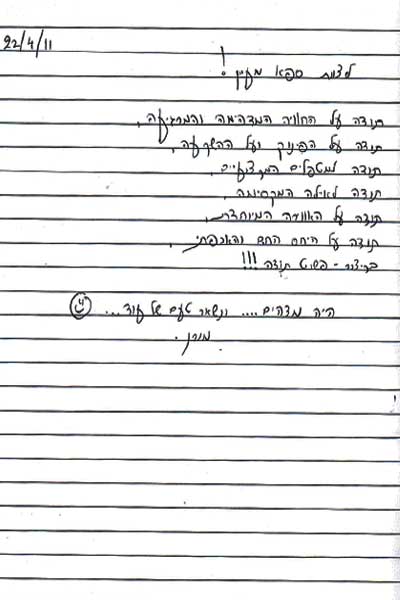 22/4/11
לצוות ספא מעיין!
תודה על החוויה המדהימה והמרגיעה,
תודה על הפינוק ועל ההשקעה,
תודה למטפלים המקצועיים,
תודה לאילה המקסימה,
תודה על האווירה המיוחדת,
תודה על היחס החם והאכפתי,
בקיצור - פשוט תודה!!!
היה מדהים.... ונשאר טעם של עוד...
מורן.